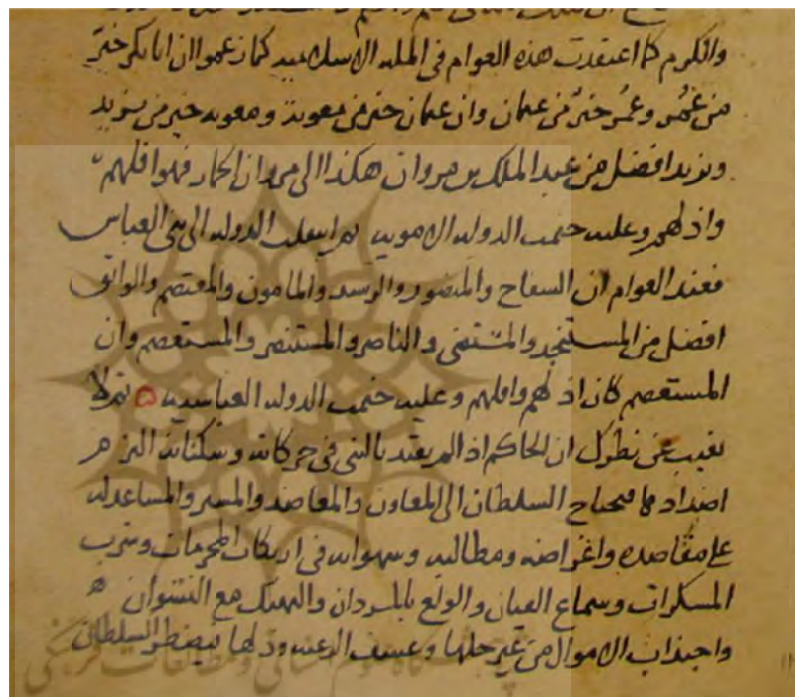 والكرم كما اعتقدت هذه العوام في الملة الاسلامية كما زعموا ان ابا بكر خير
من عُمر وعُمر خيرٌ من عثمان وان عثمان خير من معوية ومعويه خير من يزيد
ويزيد افضل من عبد الملك بن مروان هكذا الى مروان الحمار فهو اقلهم
واذلهم وعليه ختمت الدوله الامويه ثم انتقلت الدوله الى بني العباس
فعند العوام ان السفاح والمنصور والرشيد والمامون والمعتصم والواثق
افضل من المستنجد والمستضى والناصر والمستنصر والمستعصم وان
المستعصم كان اذلهم واقلهم وعليه ختمت الدوله العباسيه ثم لا
يغيب عن نظرك ان الحاكم اذا لم يقتد بالنبي في حركاته وسكناته التزم
اضداد ما فيحتاج السلطان الى المعاون والمعاضد والمشير والمساعد له
على مقاصده واغراضه ومطالبه وشهواته في ارتكاب المحرمات وشرب
المسكرات وسماع القيان والولع بالمردان والتهتك مع النسوان
واجتذاب الاموال من غير حلها وعسف الرعيه وذلها فيضطر السلطان